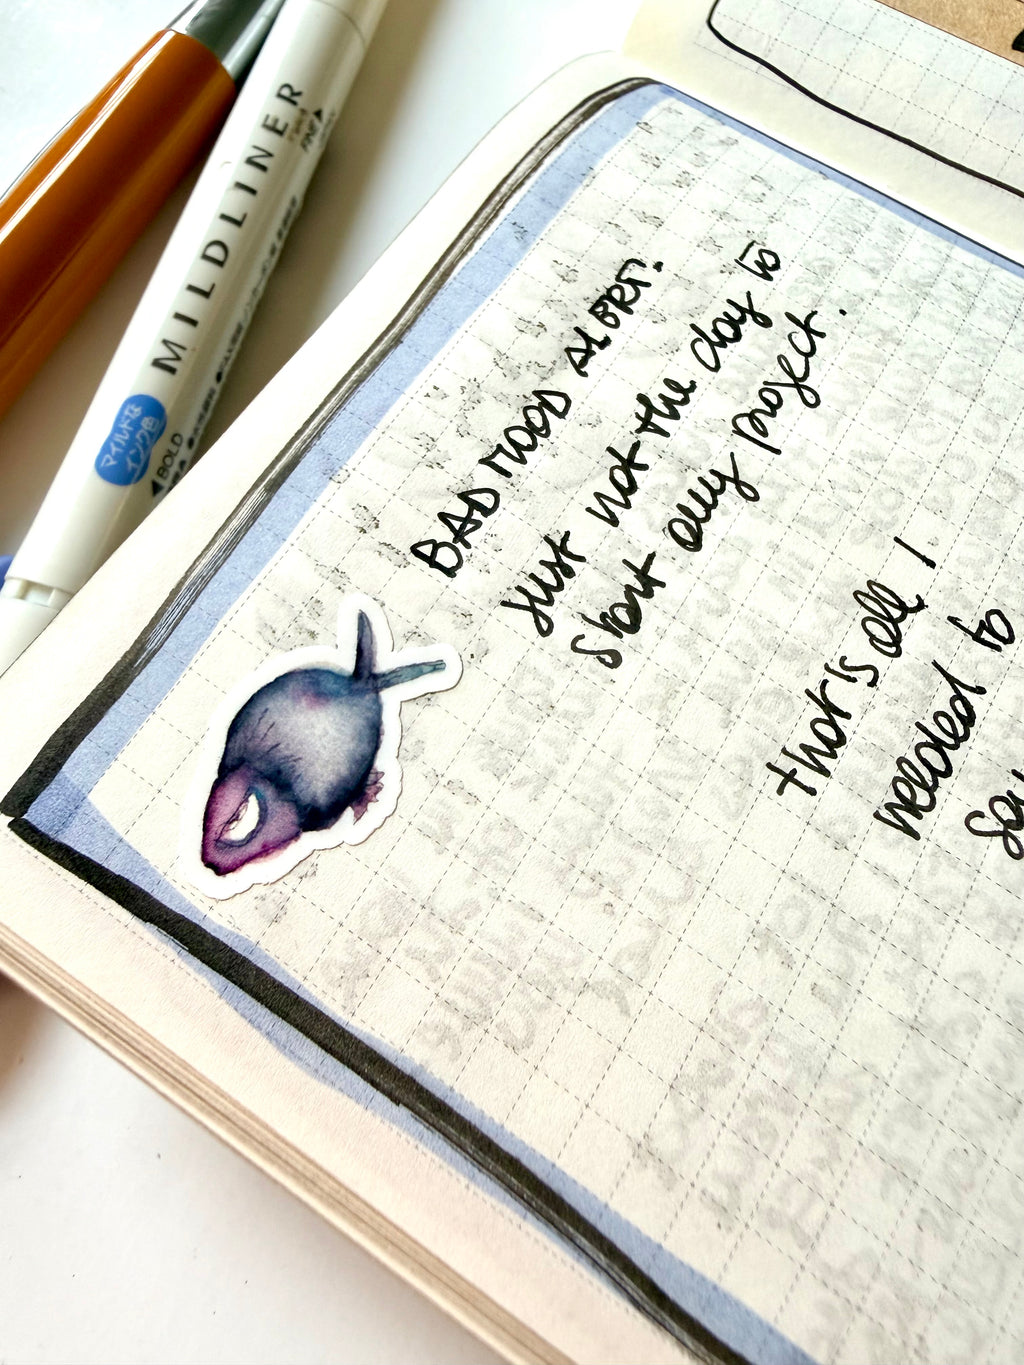 MILDLINER
FINE
マイルドな
インク色
BOLD
BAD MOOD ALERT.
Just not the day to
start any project.
that is all I
needed to